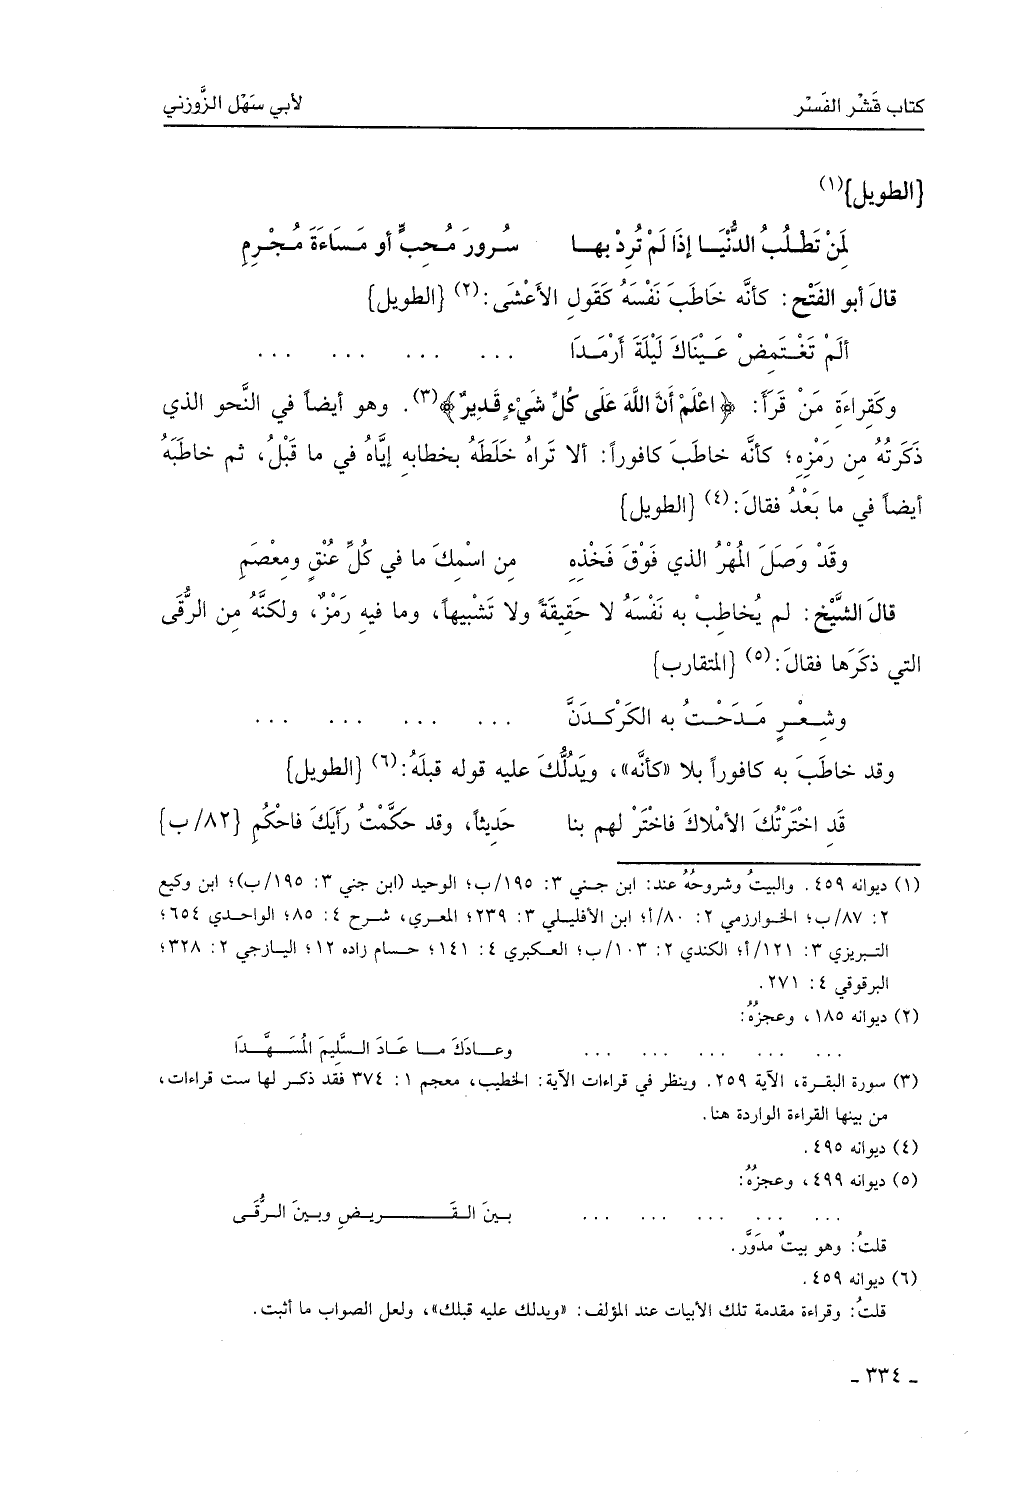 كتاب قَشْر الفَسْر لأبي سَهْل الزَّوزني
[الطويل](١)
لِمَنْ تَطْلُبُ الدُّنْيَا إذَا لَمْ تُرِدْ بها سُرورَ مُحِبٍّ أو مَسَاءَةَ مُجْرِمِ
قالَ أبو الفَتْح: كأنَّه خَاطَبَ نَفْسَهُ كَقَولِ الأَعْشَى:(٢) [الطويل]
ألَمْ تَغْتَمِضْ عَيْنَاكَ لَيْلَةَ أَرْمَدَا ... ... ... ...
وكَقِراءَةِ مَنْ قَرَأَ: ﴿اعْلَمْ أَنَّ اللَّهَ عَلَى كُلِّ شَيْءٍ قَدِيرٌ﴾(٣). وهو أيضاً في النَّحو الذي
ذَكَرتُهُ مِن رَمْزِهِ؛ كأنَّه خاطَبَ كافوراً: ألا تراهُ خَلَطَهُ بخطابِهِ إيَّاهُ في ما قَبْلُ، ثم خاطَبَهُ
أيضاً في ما بَعْدُ فقالَ:(٤) [الطويل]
وقَدْ وَصَلَ المُهْرُ الذي فَوْقَ فَخْذِهِ مِن اسْمِكَ ما في كُلِّ عُنْقٍ ومِعْصَمِ
قالَ الشَّيْخ: لم يُخاطِبْ به نَفْسَهُ لا حَقِيقَةً ولا تَشْبِيهاً، وما فيهِ رَمْزٌ، ولكنَّهُ مِن الرُّقَى
التي ذكَرَها فقالَ:(٥) [المتقارب]
وشِعْرٍ مَدَحْتُ به الكَرْكَدَنَّ ... ... ... ...
وقد خاطَبَ به كافوراً بلا «كأنَّه»، ويَدُلُّكَ عليه قوله قبلَهُ:(٦) [الطويل]
قَدِ اخْتَرْتُكَ الأمْلاكَ فاخْتَرْ لهم بنا حَدِيثاً، وقد حَكَّمْتُ رَأيَكَ فاحْكُمِ [٨٢/ب]
(١) ديوانه ٤٥٩. والبيتُ وشروحُهُ عند: ابن جني ٣: ١٩٥/ب؛ الوحيد (ابن جني ٣: ١٩٥/ب)؛ ابن وكيع
٢: ٨٧/ب؛ الخوارزمي ٢: ٨٠/أ؛ ابن الأفليلي ٣: ٢٣٩؛ المعري، شرح ٤: ٨٥؛ الواحدي ٦٥٤؛
التبريزي ٣: ١٢١/أ؛ الكندي ٢: ١٠٣/ب؛ العكبري ٤: ١٤١؛ حسام زاده ١٢؛ اليازجي ٢: ٣٢٨؛
البرقوقي ٤: ٢٧١.
(٢) ديوانه ١٨٥، وعجزُهُ:
... ... ... ... ... وعادَكَ ما عَادَ السَّليمَ المُسَهَّدَا
(٣) سورة البقرة، الآية ٢٥٩. وينظر في قراءات الآية: الخطيب، معجم ١: ٣٧٤ فقد ذكر لها ست قراءات،
من بينها القراءة الواردة هنا.
(٤) ديوانه ٤٩٥.
(٥) ديوانه ٤٩٩، وعجزُهُ:
... ... ... ... ... بينَ القَـريضِ وبينَ الرُّقَى
قلتُ: وهو بيتٌ مدَوَّر.
(٦) ديوانه ٤٥٩.
قلتُ: وقراءة مقدمة تلك الأبيات عند المؤلف: «ويدلك عليه قبلك»، ولعل الصواب ما أثبت.
- ٣٣٤ -